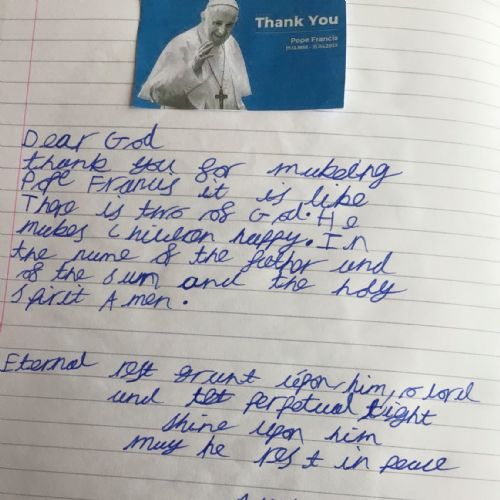 Thank You
Pope Francis
Dear God
thank you for mukeing
Pope Francis it is like
There is two of God. He
makes children happy. In
the name of the father und
of the sum and the holy
spirit Amen.
Eternal rest grunt upon him, o lord
und let perpetual light
shine upon him
may he rest in peace